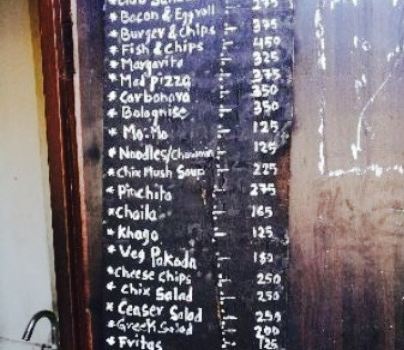 * Bacon & Egg roll 375
* Burger & Chips 375
* Fish & Chips 450
* Margarita 325
* Med pizza 375
* Carbonara 350
* Bolognise 350
* Mo:Mo 125
* Noodles/Chowmin 125
* Chix Mush Soup 225
* Pinchito 275
* Choila 165
* Khago 125
* Veg Pakoda 180
* Cheese Chips 250
* Chix Salad 250
* Ceaser Salad 250
* Greek Salad 200
* Fritas 125